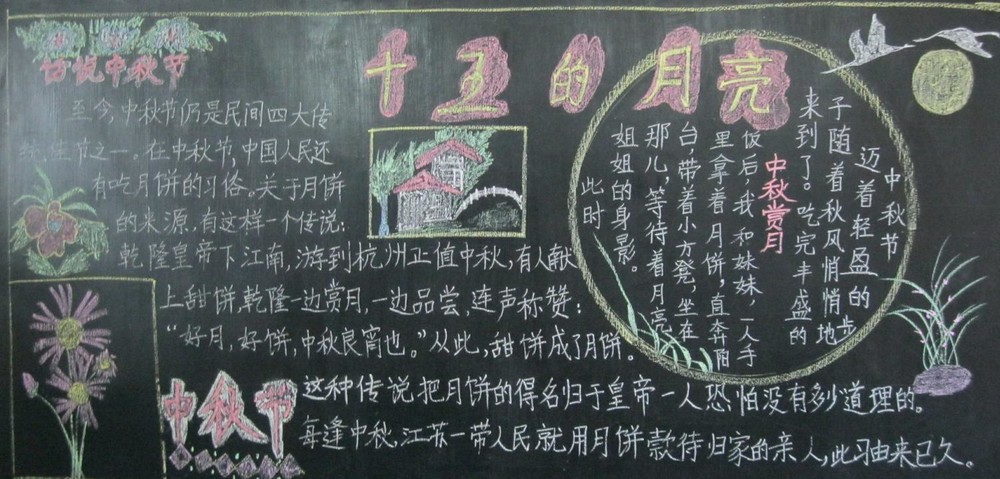 十五的月亮
话说中秋节
至今,中秋节仍是民间四大传
节之一。在中秋节,中国人民还
有吃月饼的习俗。关于月饼
的来源,有这样一个传说:
乾隆皇帝下江南,游到杭州正值中秋,有人献
上甜饼,乾隆一边赏月,一边品尝,连声称赞:
“好月,好饼,中秋良宵也。”从此,甜饼成了月饼。
中秋节
这种传说把月饼的得名归于皇帝一人恐怕没有多少道理的。
每逢中秋,江苏一带人民就用月饼款待归家的亲人,此习由来已久。
中秋赏月
中秋节
迈着轻盈的步
子随着秋风悄悄地
来到了。吃完丰盛的
饭后,我和妹妹,一人手
里拿着月饼,直奔阳
台,带着小方凳,坐在
那儿,等待着月亮
姐姐的身影。
此时